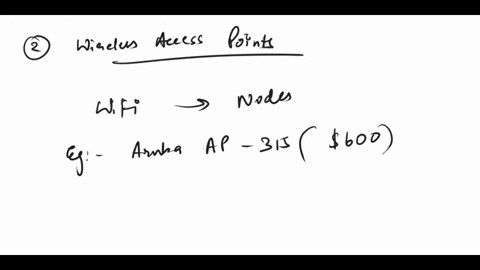 ② Wireless Access Points
WiFi → Nodes
Eg:- Aruba AP - 315 ( $600)